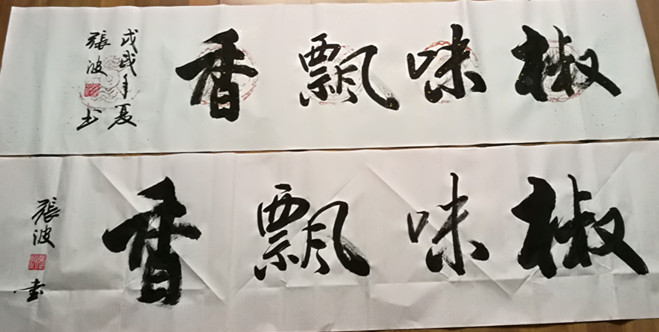 椒味飘香
戊戌年夏
張波书
椒味飘香
張波书